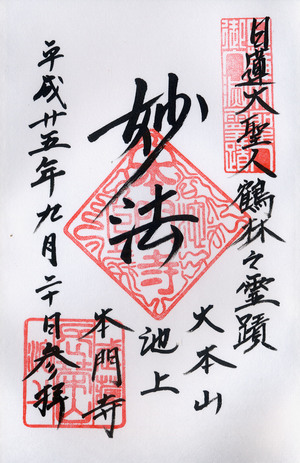 日蓮大聖人鶴林之霊蹟
妙法
大本山
池上
本門寺
平成廿五年九月二十日参拝